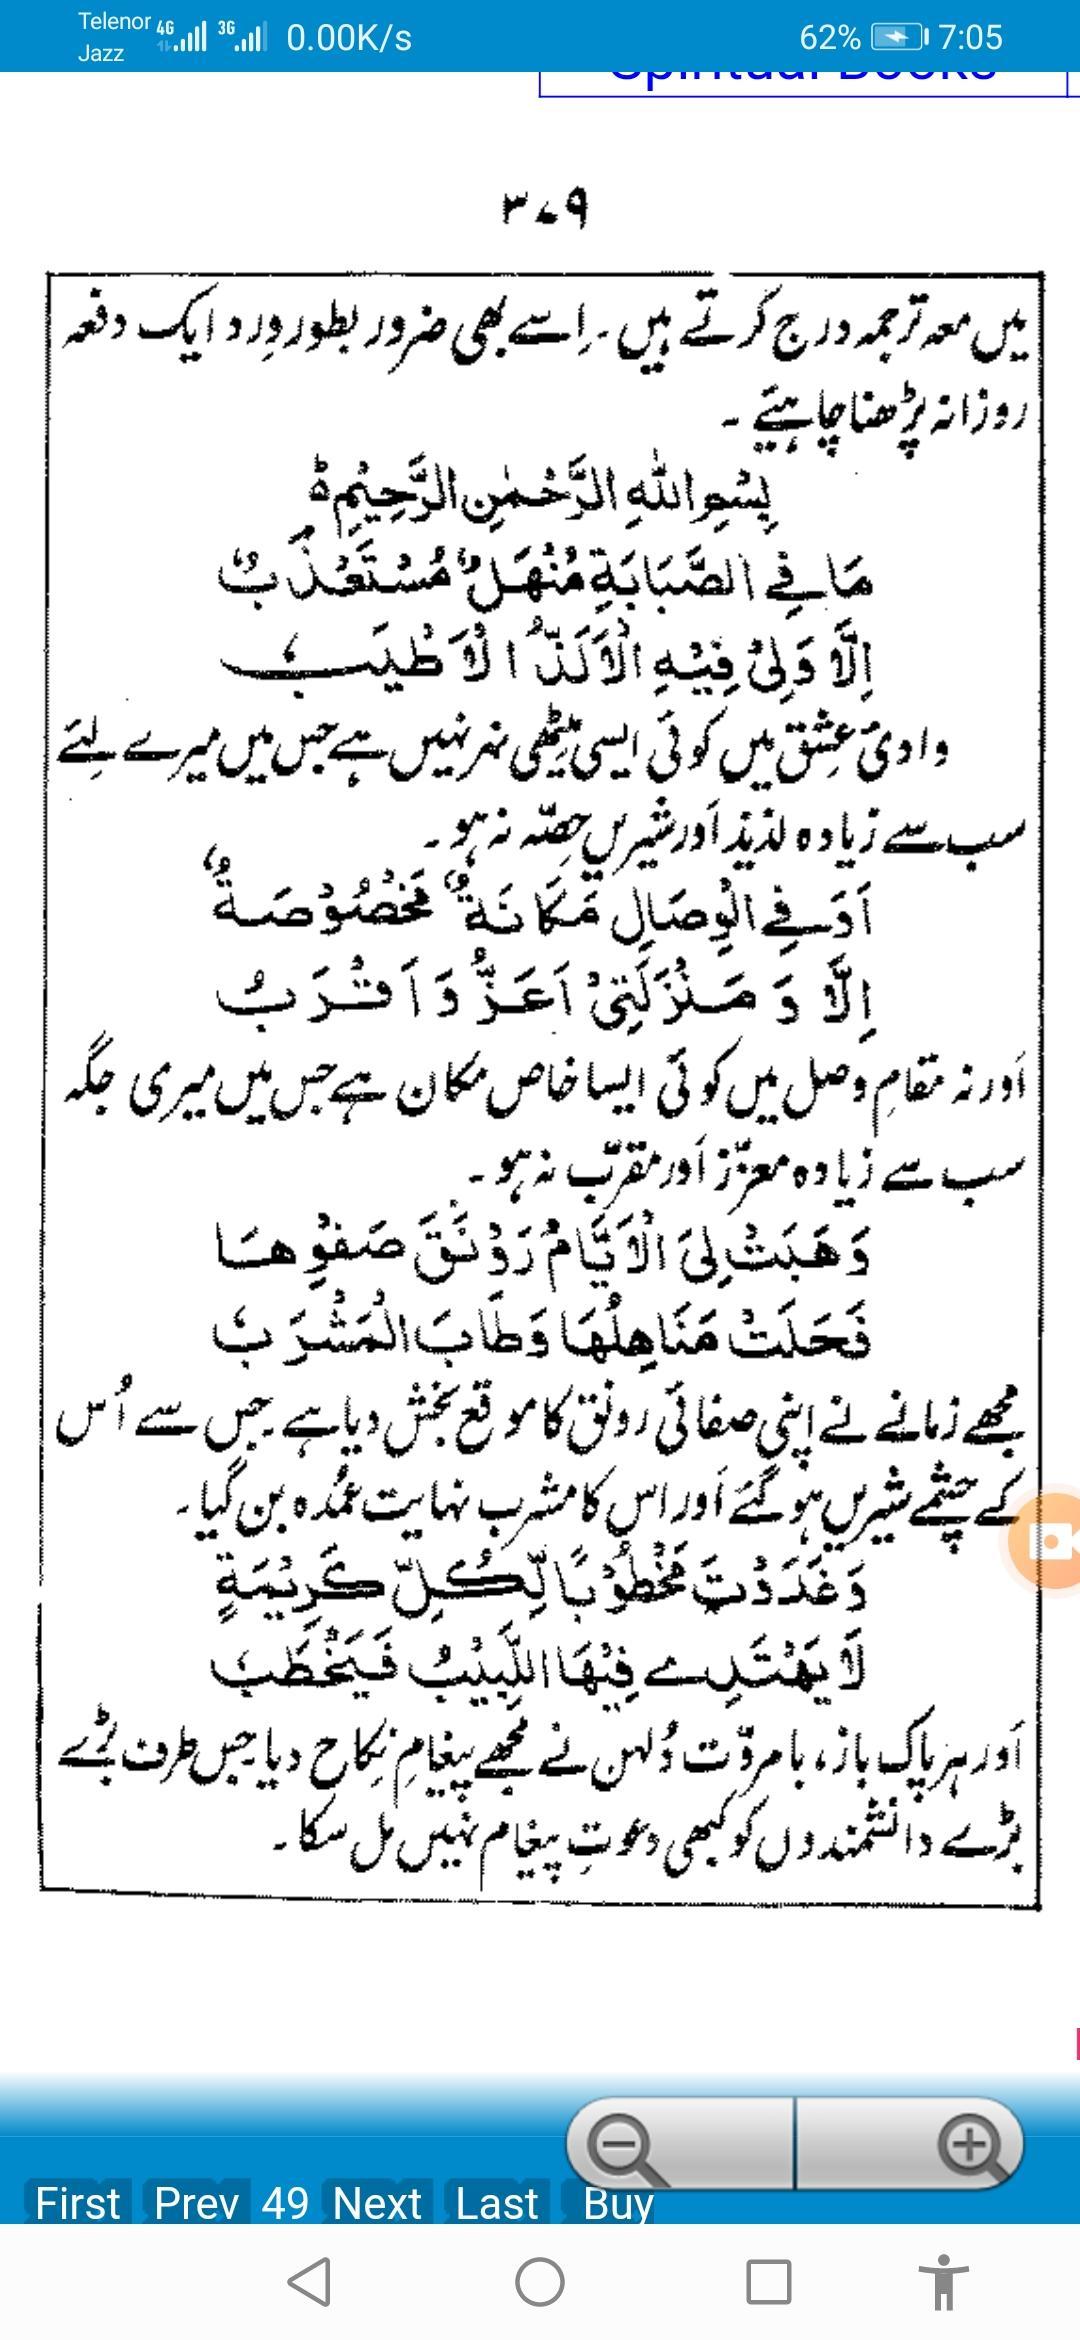 Telenor 4G 3G 0.00K/s 62% 7:05
Jazz
Spiritual Books
۳۷۹
میں معہ ترجمہ درج کرتے ہیں۔ اِسے بھی ضرور بطور وِرد ایک دفعہ
روزانہ پڑھنا چاہیئے ۔
بِسْمِ اللّٰهِ الرَّحْمٰنِ الرَّحِيْمِ ۵
مَا فِے الصَّبَابَةِ مُنْهَلٌ مُسْتَعْذَبٌ
اِلَّا وَلِیْ فِيْهِ الْاَلَذُّ الْاَطْيَبُ
وادیٔ عِشق میں کوئی ایسی میٹھی نہر نہیں ہے جس میں میرے لئے
سب سے زیادہ لذیذ اَور شیریں حِصّہ نہ ہو۔
اَوَفِے الْوِصَالِ مَكَانَةٌ مَخْصُوْصَةٌ
اِلَّا وَ مَنْزَلَتِیْ اَعَزُّ وَ اَقْرَبُ
اَور نہ مقامِ وصل میں کوئی ایسا خاص مکان ہے جس میں میری جگہ
سب سے زیادہ معزّز اَور مقرّب نہ ہو۔
وَهَبَتْ لِیَ الْاَيَّامُ رَوْنَقَ صَفْوِهَا
فَحَلَتْ مَنَاهِلُهَا وَطَابَ الْمَشْرَبُ
مجھے زمانے نے اپنی صفائی رونق کا موقع بخش دیا ہے۔ جس سے اُس
کے چشمے شیریں ہو گئے اَور اس کا مشرب نہایت عمُدہ بن گیا۔
وَغَدَوْتَ مَخْطُوْبًا لِّكُلِّ كَرِيْمَةٍ
لَا يَهْتَدِے فِيْهَا اللَّبِيْبُ فَيَخْطَبُ
اَور ہر پاک باز، با مروّت دُلہن نے مجھے پیغامِ نِکاح دیا جس طرف بڑے
بڑے دانشمندوں کو کبھی دعوتِ پیغام نہیں مل سکا۔
First Prev 49 Next Last Buy